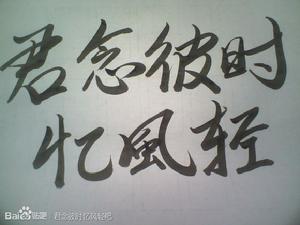 君念彼时
忆風轻
Bai贴吧 君念彼时忆风轻吧